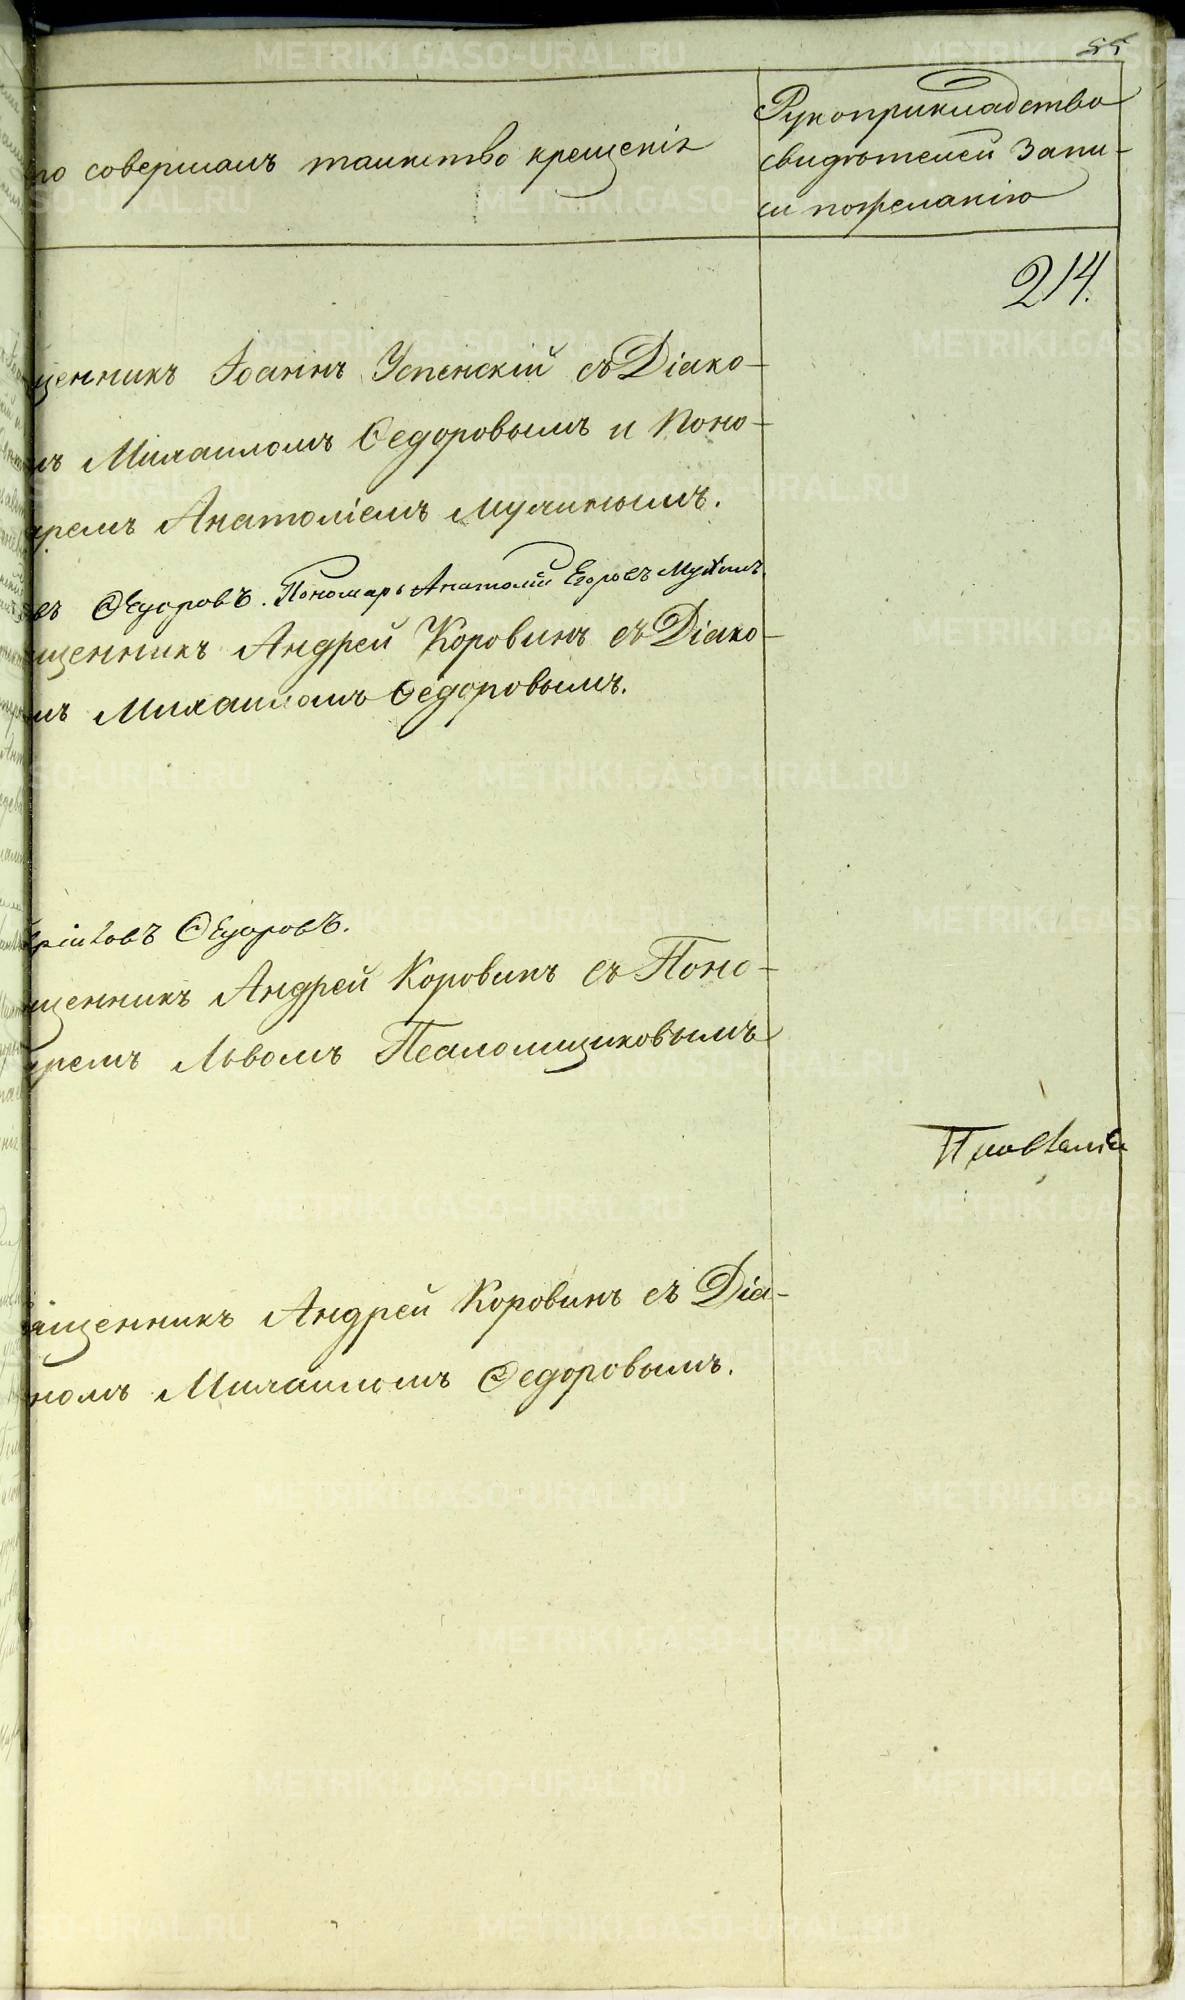 55
то совершалъ таинство крещенія
Рукоприкладство
свидѣтелей Запи-
си пожеланію
214.
щенникъ Іоаннъ Успенскій съ Діако-
мъ Михаиломъ Ѳедоровымъ и Поно-
аремъ Анатоліемъ Мухинымъ.
въ Ѳедоровъ. Пономарь Анатолій Егоровъ Мухинъ.
щенникъ Андрей Коровинъ съ Діако-
мъ Михаиломъ Ѳедоровымъ.
Ѳедоровъ.
щенникъ Андрей Коровинъ съ Поно-
аремъ Львомъ Псаломщиковымъ
ященникъ Андрей Коровинъ съ Діа-
номъ Михаиломъ Ѳедоровымъ.
METRIKI.GASO-URAL.RU